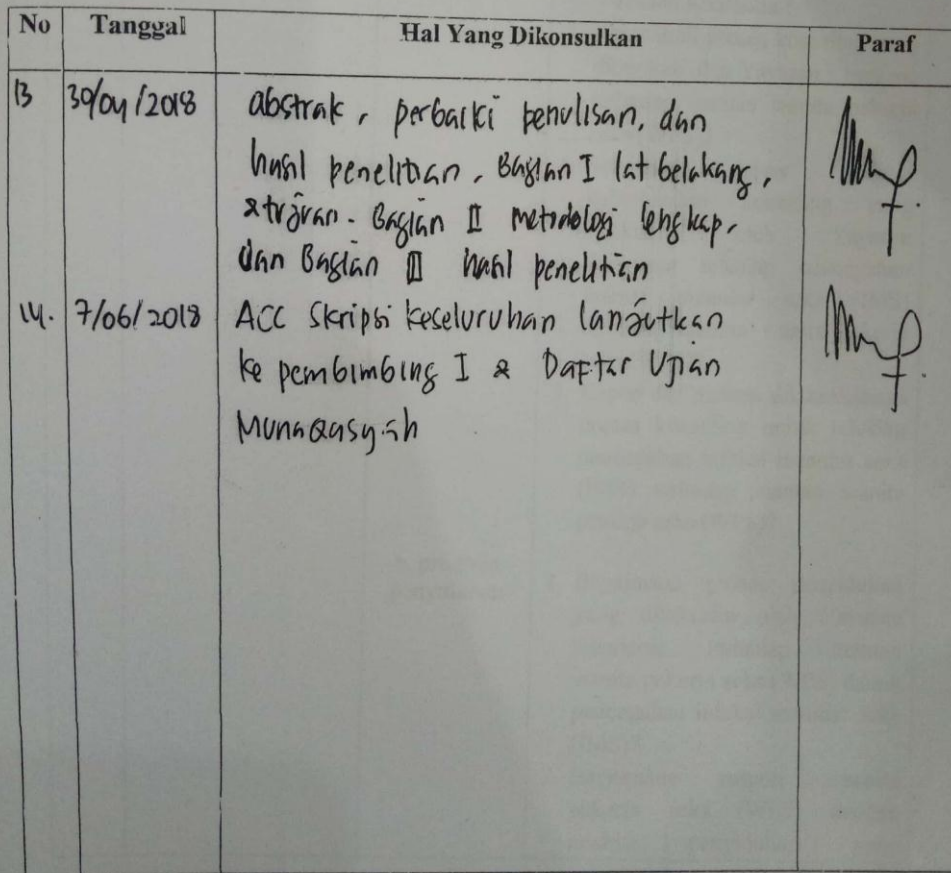 No Tanggal Hal Yang Dikonsulkan Paraf
13 30/04/2018 abstrak, perbaiki penulisan, dan
hasil penelitian. Bagian I lat belakang,
& tujuan. Bagian II metodologi lengkap,
dan Bagian III hasil penelitian
14. 7/06/2018 ACC Skripsi keseluruhan lanjutkan
ke pembimbing I & Daftar Ujian
Munaqasyah